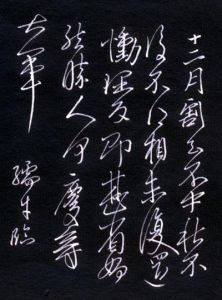 十二月割至不中秋不
復不得相未復還
慟理為即甚省如何
然勝人何慶等
大軍
孺牛臨